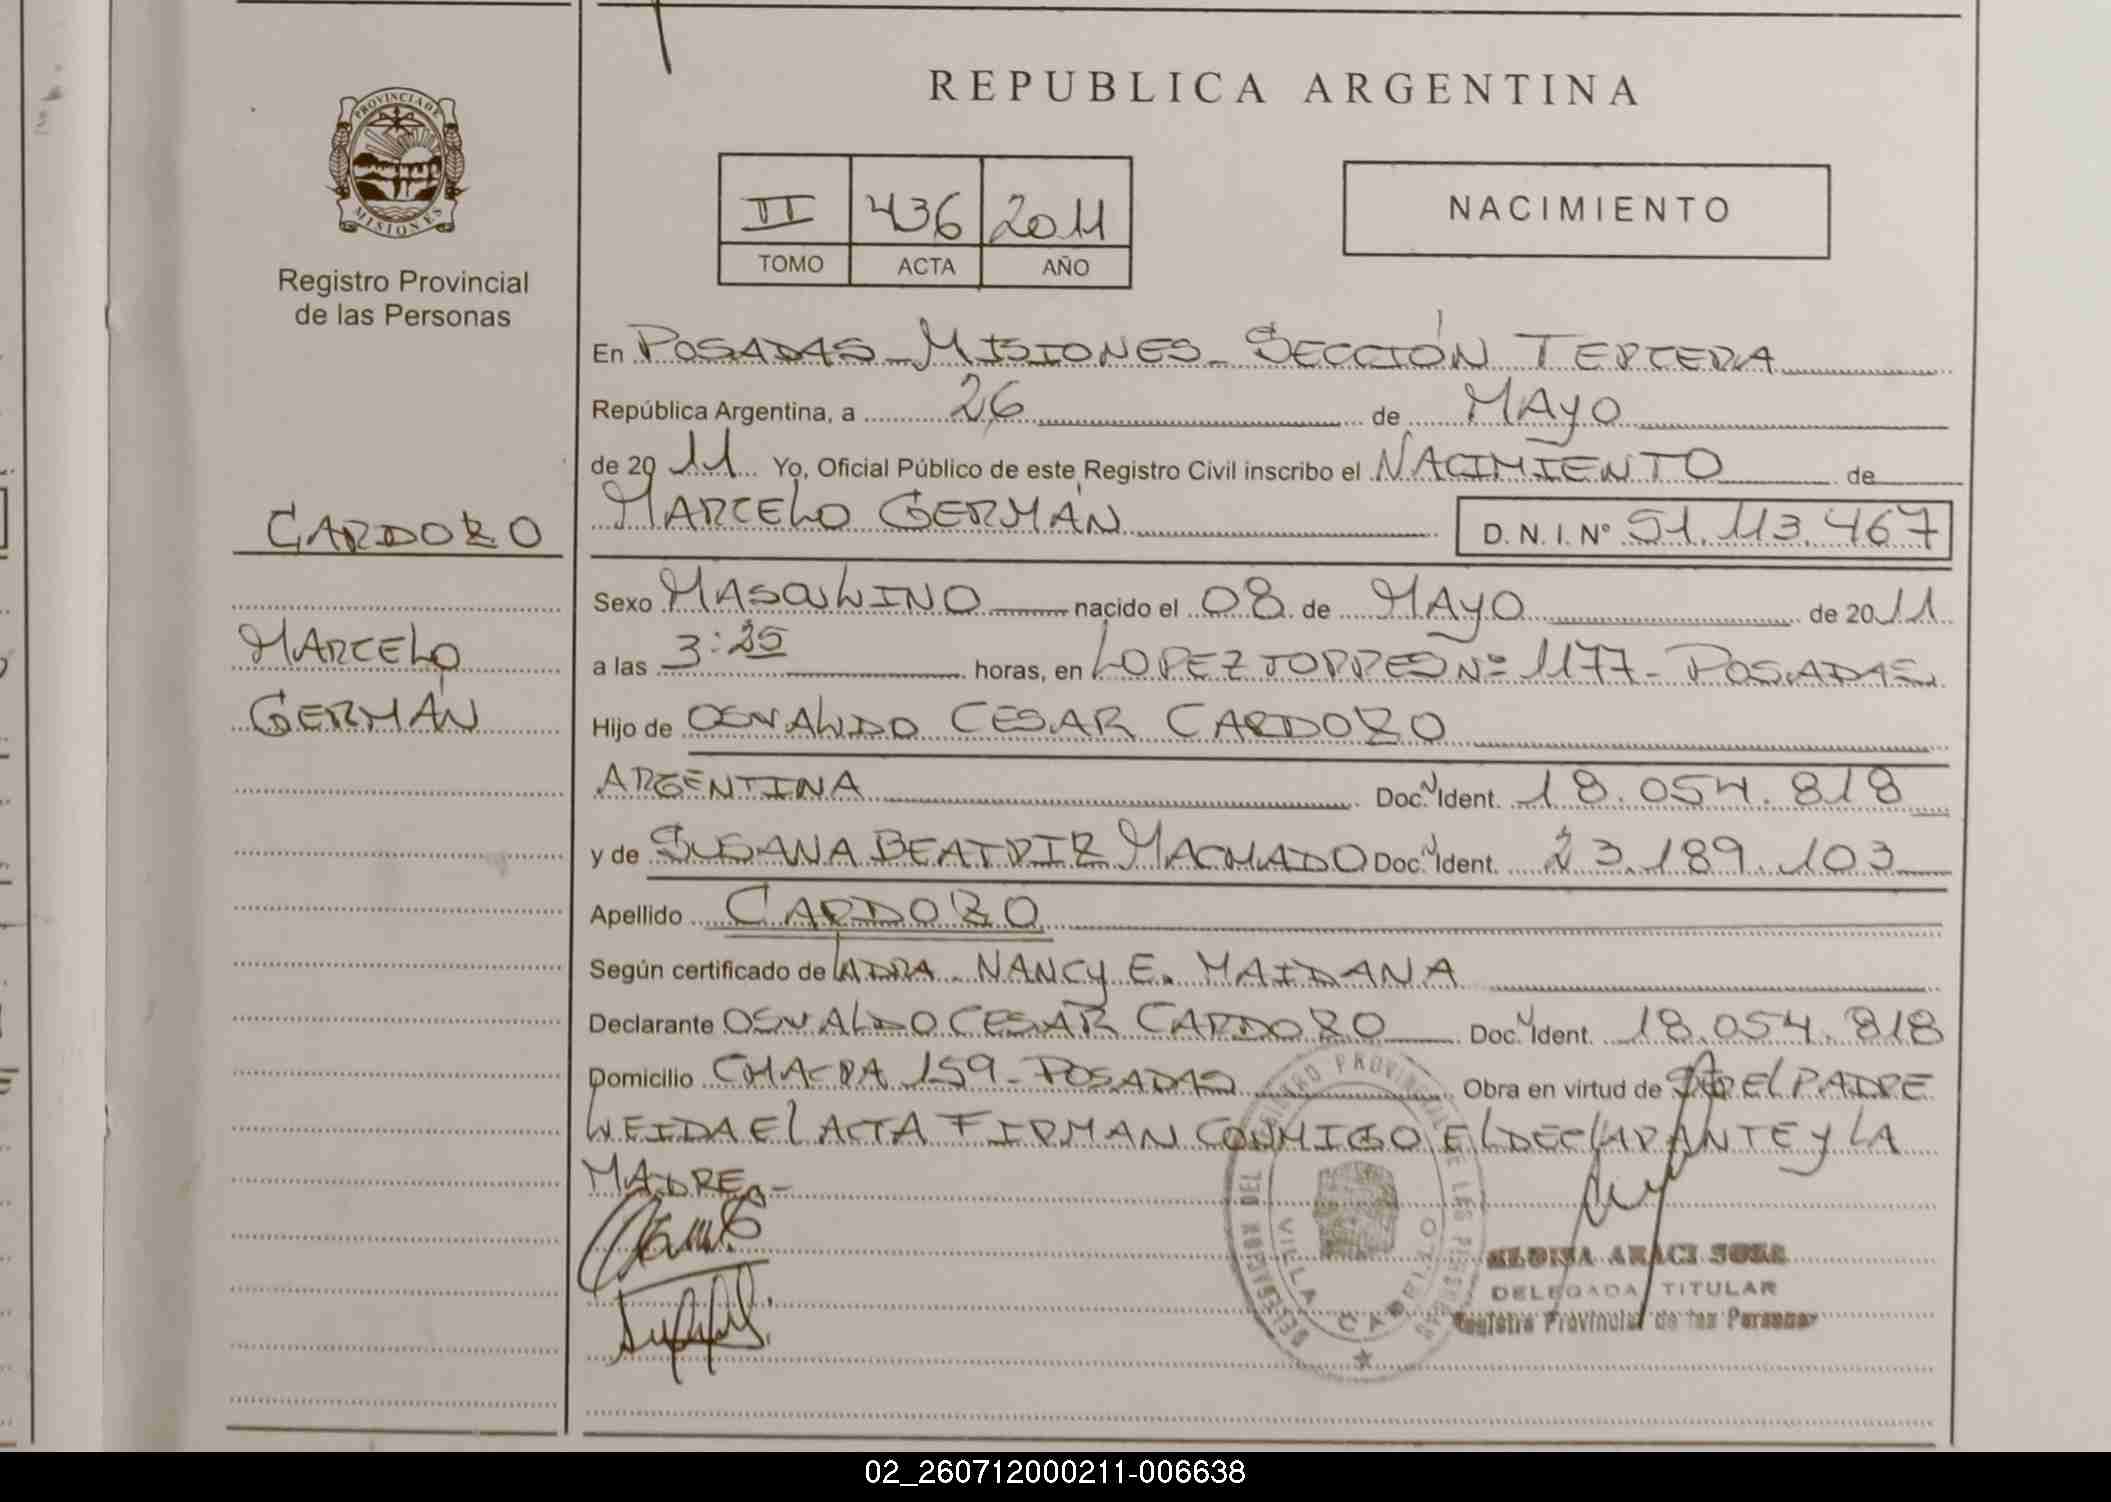 PROVINCIA DE
MISIONES
Registro Provincial
de las Personas
CARDOZO
MARCELO
GERMÁN
REPUBLICA ARGENTINA
II 436 2011
TOMO ACTA AÑO
NACIMIENTO
En POSADAS - MISIONES - SECCIÓN TERCERA
República Argentina, a 26 de MAYO
de 2011 Yo, Oficial Público de este Registro Civil inscribo el NACIMIENTO de
MARCELO GERMÁN D.N.I. Nº 51.113.467
Sexo MASCULINO nacido el 08 de MAYO de 2011
a las 3:25 horas, en LOPEZ TORRES Nº 1177 - POSADAS
Hijo de OSVALDO CESAR CARDOZO
ARGENTINA Doc. Ident. 18.054.818
y de SUSANA BEATRIZ MACHADO Doc. Ident. 23.189.103
Apellido CARDOZO
Según certificado de LA DRA. NANCY E. MAIDANA
Declarante OSVALDO CESAR CARDOZO Doc. Ident. 18.054.818
Domicilio CHACRA 159 - POSADAS Obra en virtud de SER EL PADRE
LEIDA EL ACTA FIRMAN CONMIGO EL DECLARANTE Y LA
MADRE.-
REGISTRO PROVINCIAL DE LAS PERSONAS
DELEGACION DEL
VILLA CABELLO
DELEGADA TITULAR
Registro Provincial de las Personas
02_260712000211-006638